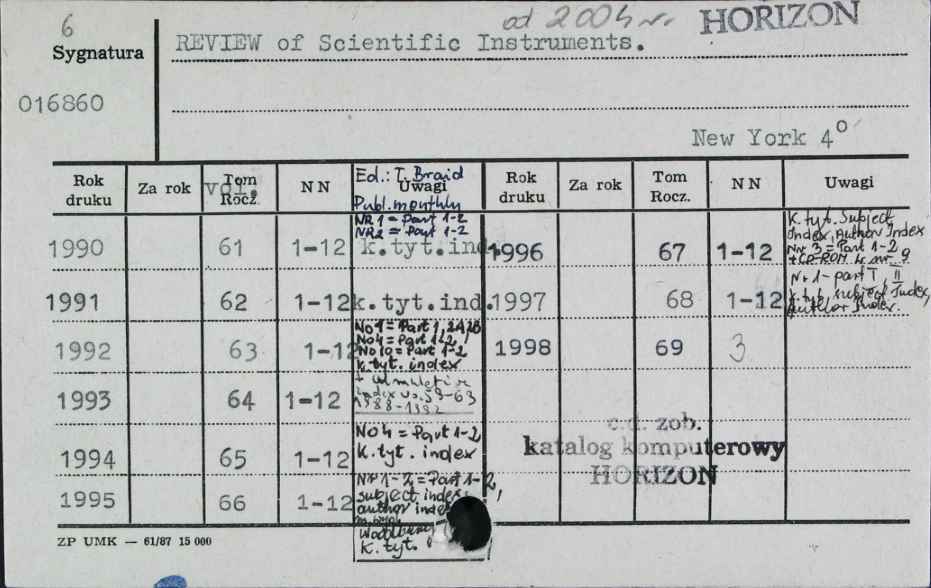 6
od 2004 r.
HORIZON
Sygnatura
REVIEW of Scientific Instruments.
016860
New York 4°
Rok druku
Za rok
vol.
Tom Rocz.
NN
Ed.: T. Braid
Uwagi
Publ. monthly
Rok druku
Za rok
Tom Rocz.
NN
Uwagi
NR 1 = Part 1-2
NR2 = Part 1-2
1990 61 1-12 k.tyt.ind.
1991 62 1-12 k.tyt.ind.
1992 63 1-12
No 4 = Part 1-2
No 10 = Part 1-2
k.tyt. index
1993 64 1-12
index vo. 59-63
1994 65 1-12
No 4 = Part 1-2
k.tyt. index
1995 66 1-12
Nr 1-2 = Part 1-2,
subject index,
author index
k.tyt.
1996 67 1-12
k.tyt. Subject
Index, Author Index
Nr 3 = Part 1-2
+CD-ROM
1997 68 1-12
Nr 1 - part I, II
k.tyt. subject Index,
author Index.
1998 69 3
c.d. zob.
katalog komputerowy
HORIZON
ZP UMK — 61/87 15 000